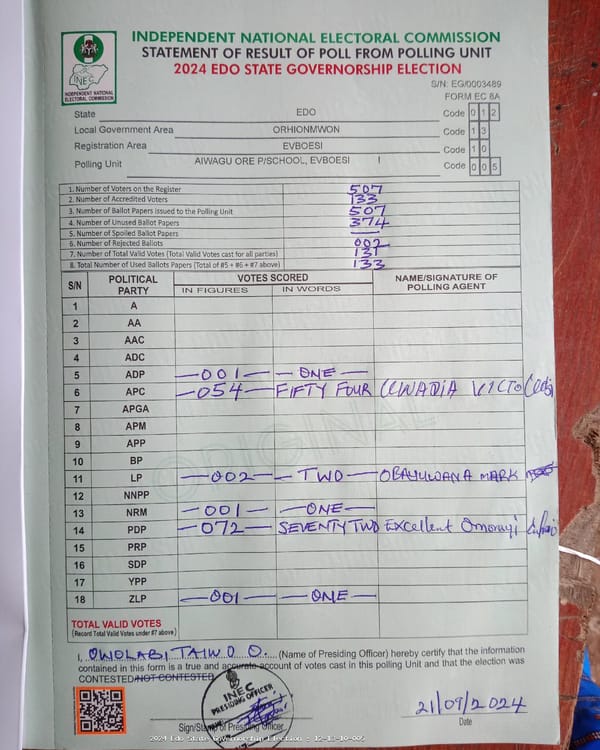 INDEPENDENT NATIONAL ELECTORAL COMMISSION
STATEMENT OF RESULT OF POLL FROM POLLING UNIT
2024 EDO STATE GOVERNORSHIP ELECTION
INEC
INDEPENDENT NATIONAL
ELECTORAL COMMISSION
S/N: EG/0003489
FORM EC 8A
State EDO Code 0 1 2
Local Government Area ORHIONMWON Code 1 3
Registration Area EVBOESI Code 1 0
Polling Unit AIWAGU ORE P/SCHOOL, EVBOESI I Code 0 0 5
1. Number of Voters on the Register 507
2. Number of Accredited Voters 133
3. Number of Ballot Papers issued to the Polling Unit 507
4. Number of Unused Ballot Papers 374
5. Number of Spoiled Ballot Papers —
6. Number of Rejected Ballots 002
7. Number of Total Valid Votes (Total Valid Votes cast for all parties) 131
8. Total Number of Used Ballots Papers (Total of #5 + #6 + #7 above) 133
S/N POLITICAL PARTY VOTES SCORED NAME/SIGNATURE OF POLLING AGENT
IN FIGURES IN WORDS
1 A
2 AA
3 AAC
4 ADC
5 ADP —001— —ONE—
6 APC —054— FIFTY FOUR
7 APGA
8 APM
9 APP
10 BP
11 LP —002— —TWO— OBAYUWANA MARK
12 NNPP
13 NRM —001— —ONE—
14 PDP —072— SEVENTY TWO Excellent Omoruyi
15 PRP
16 SDP
17 YPP
18 ZLP —001— —ONE—
ORIGINAL
TOTAL VALID VOTES
(Record Total Valid Votes under #7 above)
I, OWOLABI, TAIWO O. (Name of Presiding Officer) hereby certify that the information
contained in this form is a true and accurate account of votes cast in this polling Unit and that the election was
CONTESTED/NOT CONTESTED
INEC
PRESIDING OFFICER
21/09/2024
Sign/Stamp of Presiding Officer Date
2024 Edo State Governorship Election - 12-13-10-005